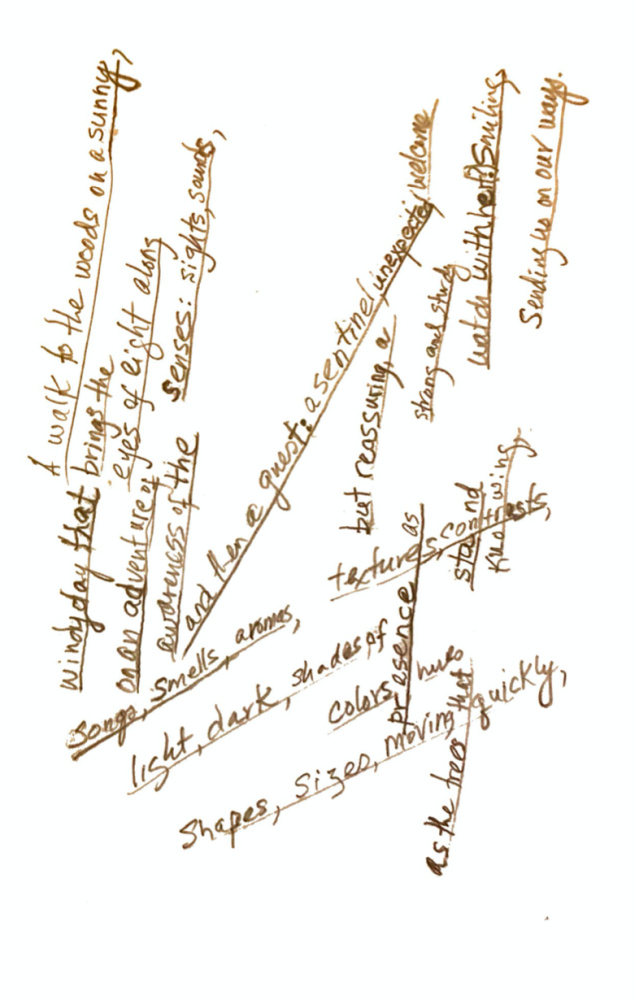 A walk to the woods on a sunny,
windy day that brings the
eyes of eight along
on an adventure of
awareness of the
senses: sights, sounds,
songs, smells, aromas,
light, dark, shades of
colors, hues
textures, contrasts,
shapes, sizes, moving quickly,
and then a guest: a sentinel, unexpected, welcome
but reassuring, a
presence as
strong and sturdy
as the trees that
stand
watch with her, Smiling,
knowing,
Sending us on our ways.